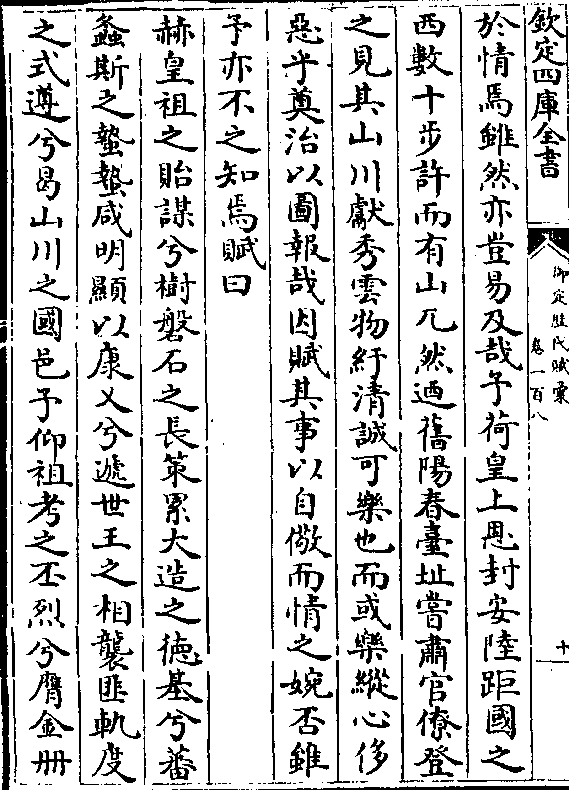 欽定四庫全書
御定歷代賦彙
卷一百八
十
於情焉雖然亦豈易及哉予荷皇上恩封安陸距國之
西數十步許而有山兀然廼舊陽春臺址嘗肅官僚登
之見其山川獻秀雲物紆清誠可樂也而或樂縱心侈
惡乎奠治以圖報哉因賦其事以自儆而情之婉否雖
予亦不之知焉賦曰
赫皇祖之貽謀兮樹磐石之長策累大造之徳基兮蕃
螽斯之蟄蟄咸明顯以康乂兮遞世王之相襲匪軌度
之式遵兮曷山川之國邑予仰祖考之丕烈兮膺金冊